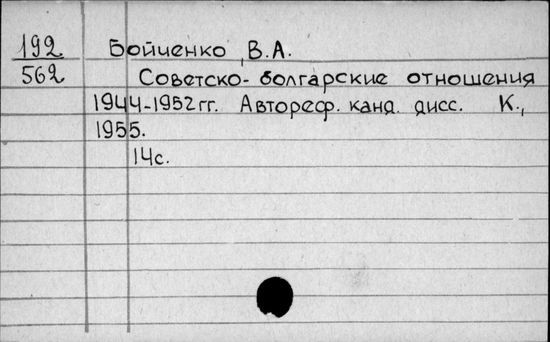 192 Бойченко В.А.
562 Советско-болгарские отношения
1944-1952гг. Автореф. канд. дисс. К.,
1955.
14с.